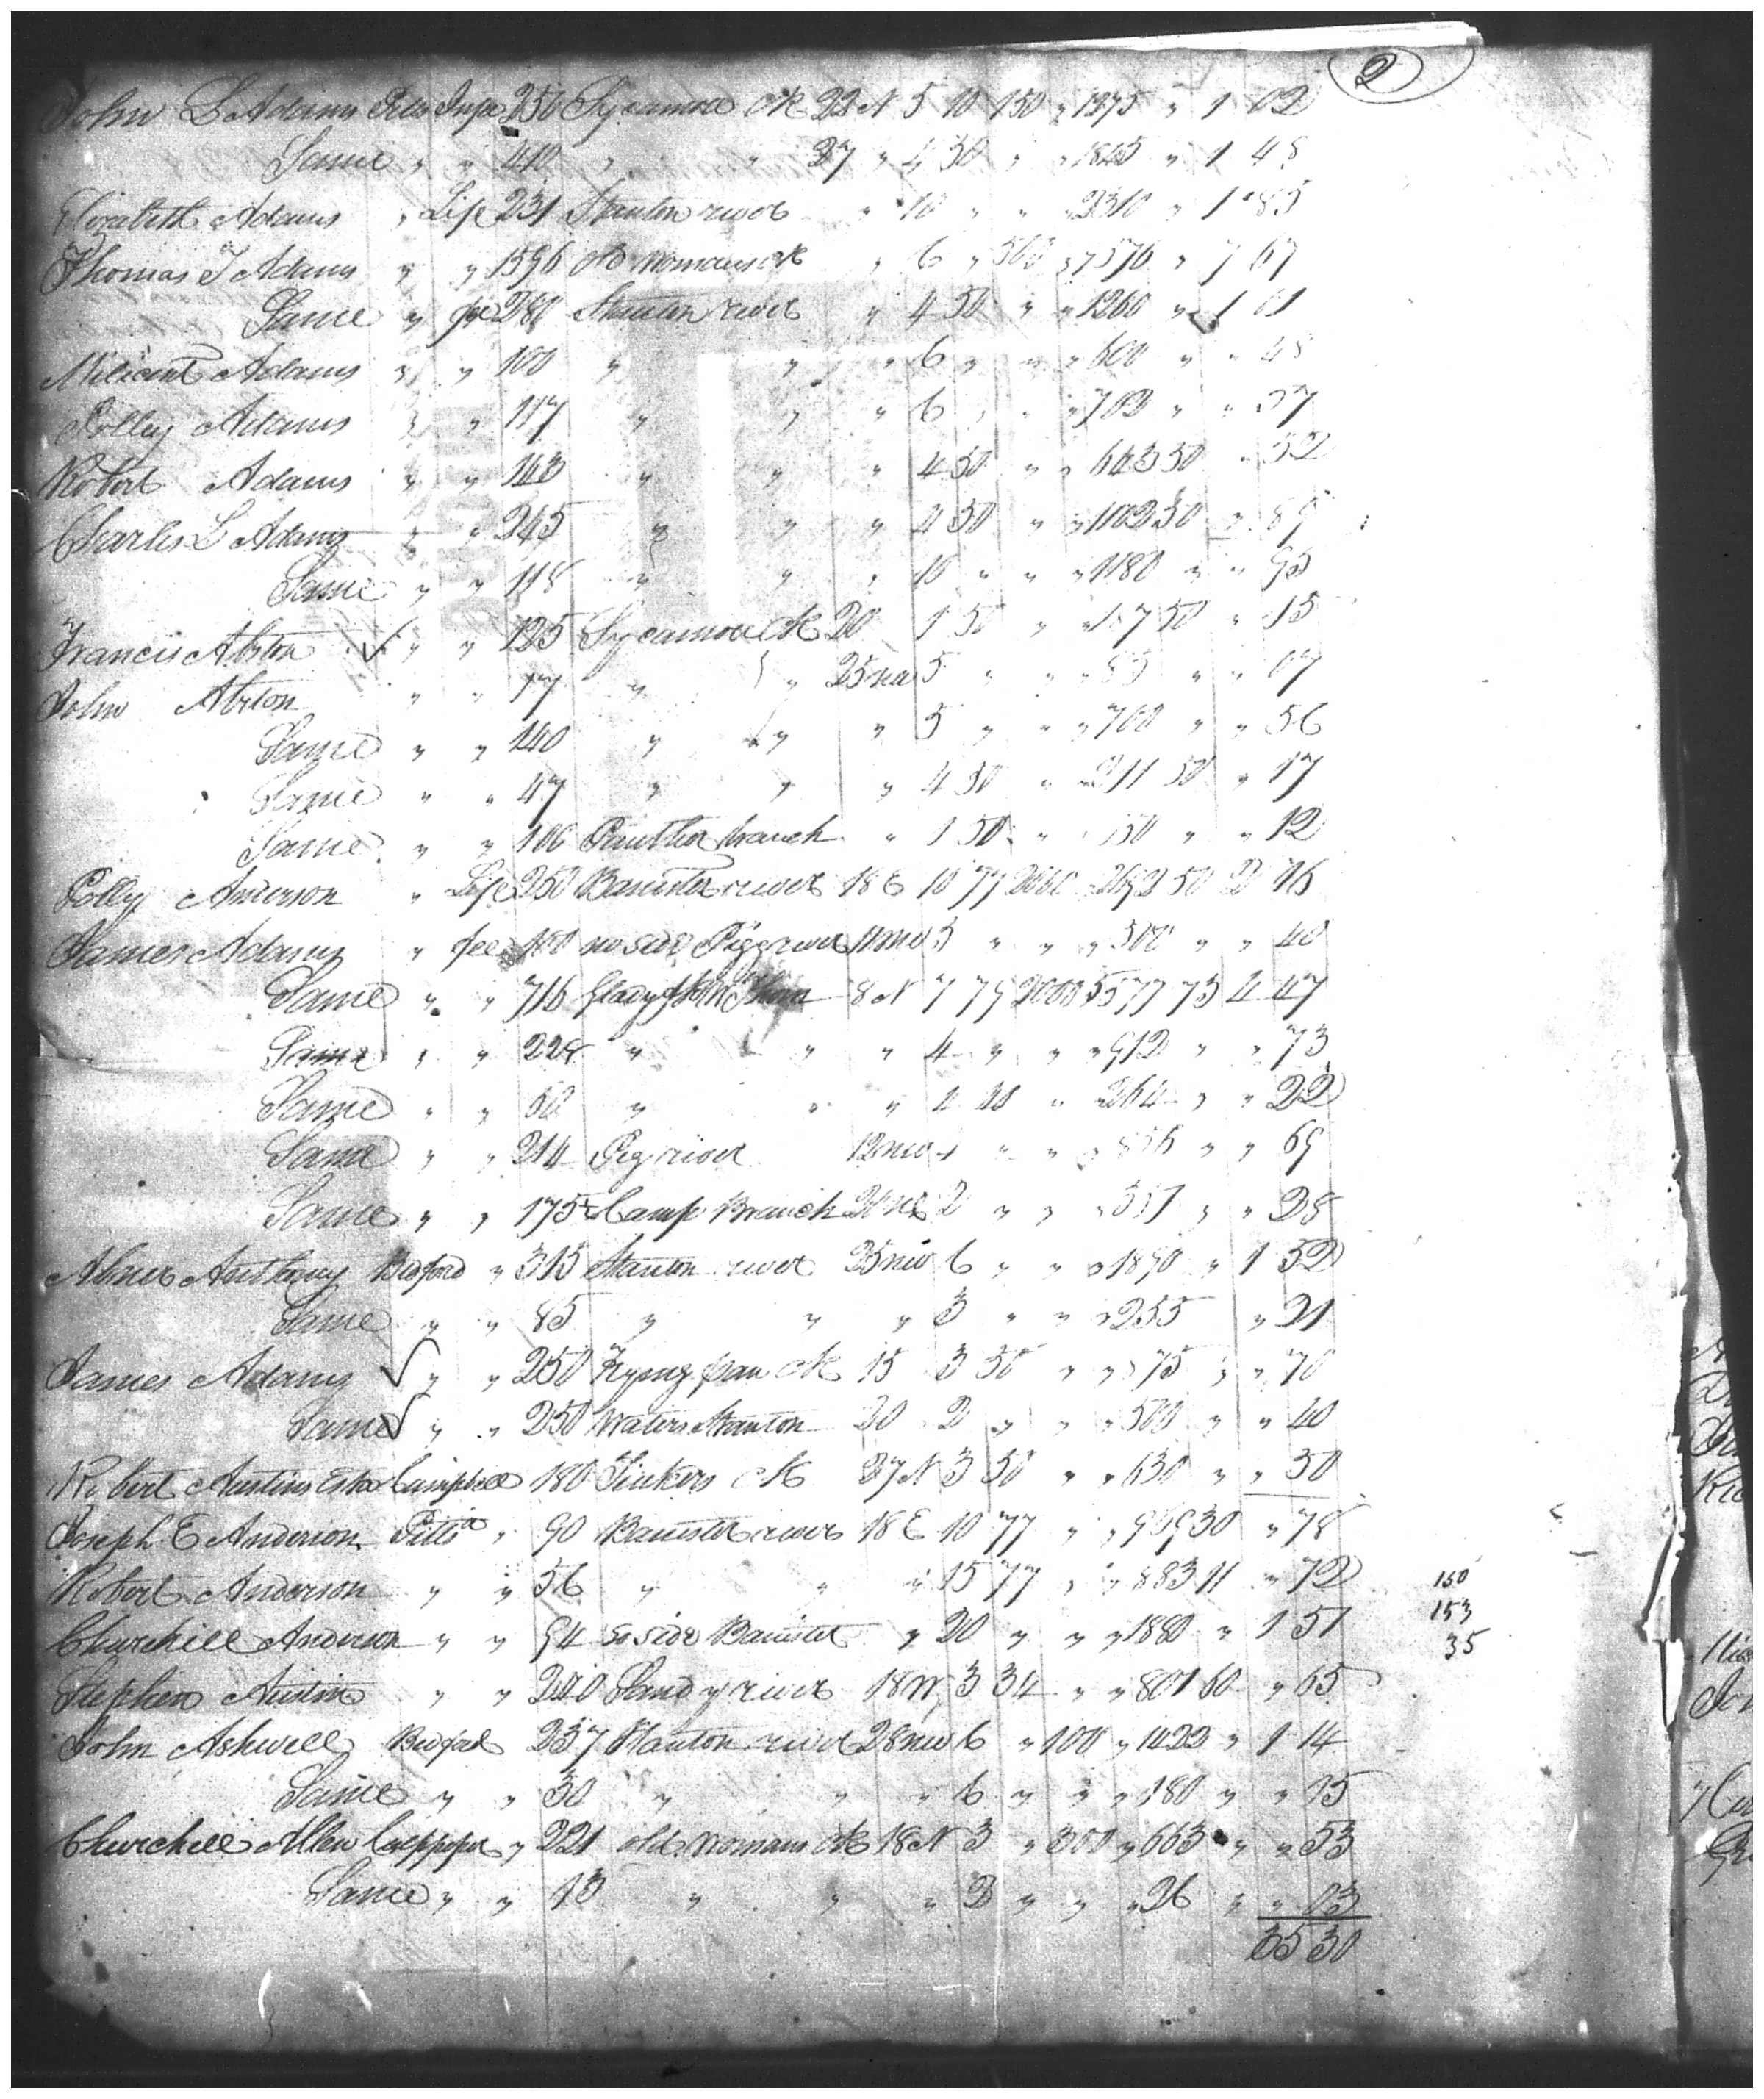 2
John L Adams Pitts fee 250 Sycamore ck 22 N 5 10 150 " 1275 " 1 02
Same " " 410 " " 27 " 4 50 " " 1845 " 1 48
Elizabeth Adams " Life 231 Stanton river " 10 " " 2310 " 1 85
Thomas T Adams " " 1596 old womans ck " 6 " 500 " 9576 " 7 67
Same " fee 280 Stanton river " 4 50 " " 1260 " 1 01
Milicent Adams " " 100 " " " 6 " " " 600 " " 48
Polley Adams " " 117 " " " 6 " " " 702 " " 57
Robert Adams " " 143 " " " 4 50 " " 643 50 " 52
Charles L Adams " " 245 " " " 4 50 " " 1102 50 " 89
Same " " 118 " " " 10 " " " 1180 " " 95
Francis Abston " " 125 Sycamore ck 20 1 50 " 187 50 " 15
John Abston " " 17 " " 25 nw 5 " " " 85 " " 07
Same " " 140 " " " 5 " " " 700 " " 56
Same " " 47 " " " 4 50 " " 211 50 " 17
Same " " 106 Panther branch " 1 50 " " " " 12
Polly Anderson " Life 250 Banister river 18 E 10 77 2000 2692 50 2 16
James Adams " fee 100 no side Pigg river 11 nw 5 " " " 500 " " 40
Same " " 716 8 N 7 79 2000 5577 75 4 47
Same " " 228 " " " 4 " " " 912 " " 73
Same " " " " " 4 " 264 " " 22
Same " " 214 Pig river 12 nw 4 " " " 856 " " 69
Same " " 175 Camp Branch 20 ne 2 " " " " " 28
Abner Anthony Bedford " 315 Stanton river 25 nw 6 " " " 1890 " 1 52
Same " " 85 " " " 3 " " " 255 " 21
James Adams " " 250 Frying pan ck 15 3 50 " " 75 " " 70
Same " " 250 Waters Stanton 20 2 " " " 500 " " 40
Robert Austins Esta Campbell 180 Sinkers ck 27 N 3 50 " " 630 " " 50
Joseph E Anderson Pitts " 90 Banister river 18 E 10 77 " " 969 30 " 78
Robert Anderson " " 56 " " " 15 77 " " 883 11 " 72
150
Churchill Anderson " " 94 So side Banister " 20 " " " 1880 " 1 51
153
35
Stephen Austin " " 240 Sandy river 18 W 3 34 " " 801 60 " 65
John Ashwell Bedford 237 Stanton river 28 nw 6 " 100 " 1422 " 1 14
Same " " 30 " " " 6 " " " 180 " " 15
Churchill Allen Culpeper " 221 old womans ck 18 N 3 " 300 " 663 " " 53
Same " " 13 " " " 2 " " " 26 " " 03
35 30